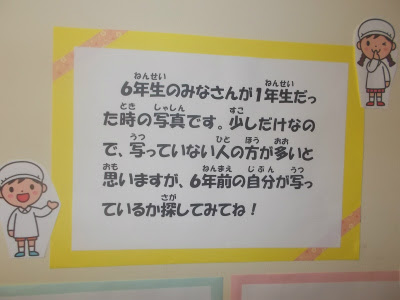 6年生のみなさんが1年生だっ
た時の写真です。少しだけなの
で、写っていない人の方が多いと
思いますが、6年前の自分が写っ
ているか探してみてね！